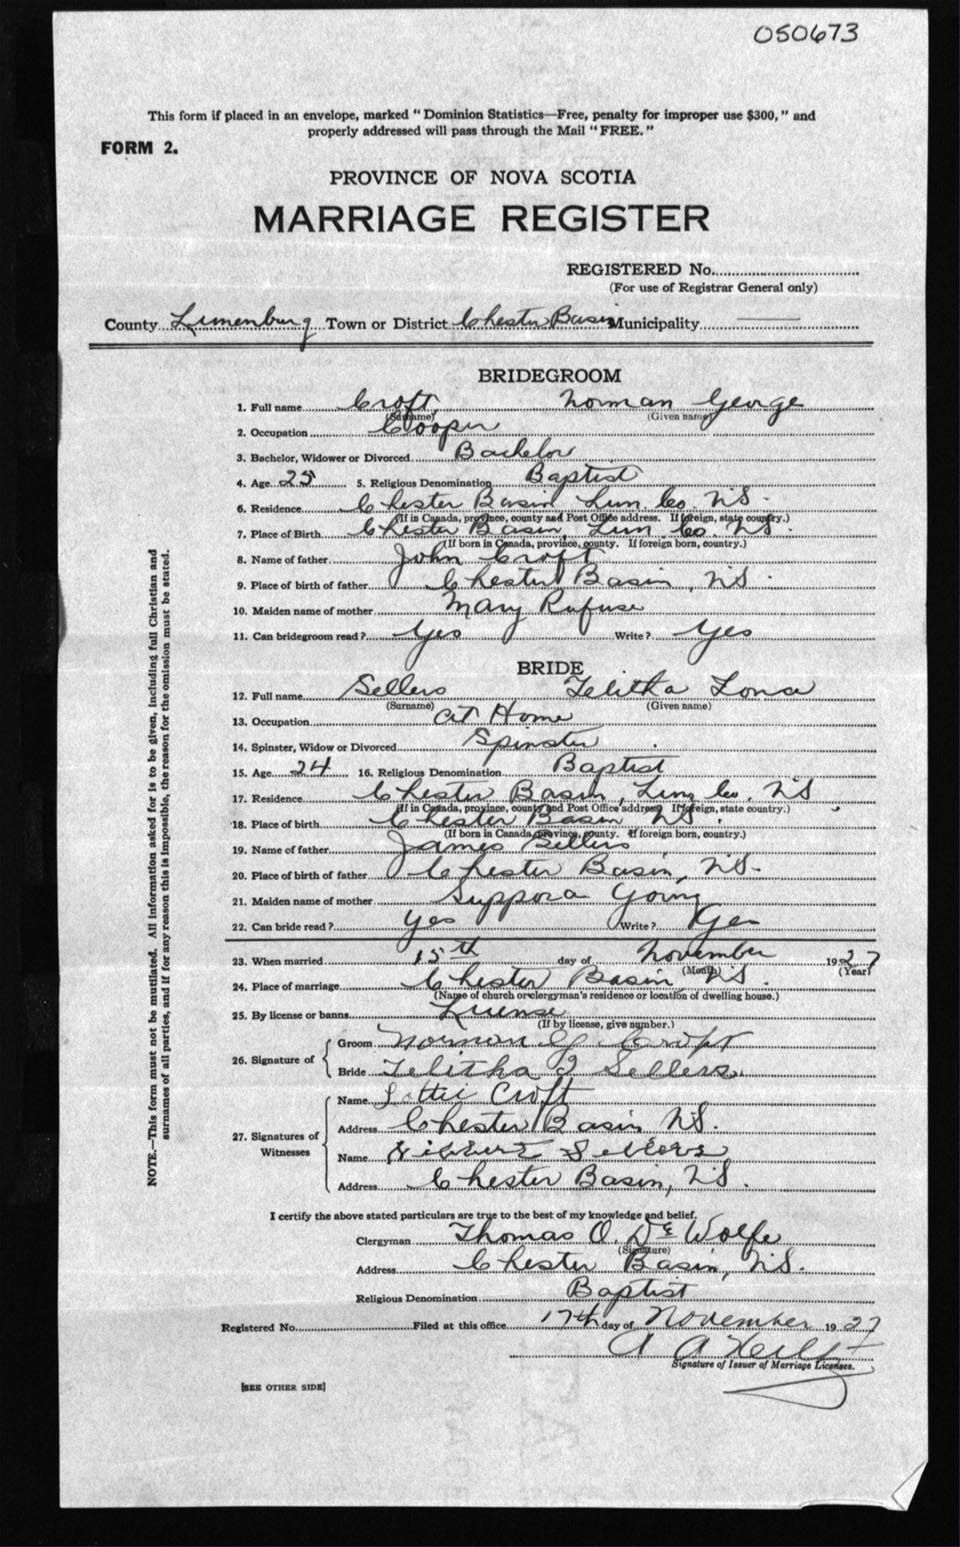 050673
This form if placed in an envelope, marked "Dominion Statistics—Free, penalty for improper use $300," and
properly addressed will pass through the Mail "FREE."
FORM 2.
PROVINCE OF NOVA SCOTIA
MARRIAGE REGISTER
REGISTERED No.
(For use of Registrar General only)
County Lunenburg Town or District Chester Basin Municipality
BRIDEGROOM
1. Full name Croft Norman George
(Surname) (Given name)
2. Occupation Cooper
3. Bachelor, Widower or Divorced Bachelor
4. Age 25 5. Religious Denomination Baptist
6. Residence Chester Basin Lun Co. N.S.
(If in Canada, province, county and Post Office address. If foreign, state country.)
7. Place of Birth Chester Basin, Lun Co. N.S.
(If born in Canada, province, county. If foreign born, country.)
8. Name of father John Croft
9. Place of birth of father Chester Basin, N.S.
10. Maiden name of mother Mary Rafuse
11. Can bridegroom read? Yes Write? Yes
BRIDE
12. Full name Sellers Telitha Lona
(Surname) (Given name)
13. Occupation At Home
14. Spinster, Widow or Divorced Spinster
15. Age 24 16. Religious Denomination Baptist
17. Residence Chester Basin, Lun Co, N.S
(If in Canada, province, county and Post Office address. If foreign, state country.)
18. Place of birth Chester Basin N.S.
(If born in Canada, province, county. If foreign born, country.)
19. Name of father James Sellers
20. Place of birth of father Chester Basin, N.S.
21. Maiden name of mother Suppora Young
22. Can bride read? Yes Write? Yes
23. When married 15th day of November 1927
(Month) (Year)
24. Place of marriage Chester Basin N.S.
(Name of church or clergyman's residence or location of dwelling house.)
25. By license or banns License
(If by license, give number.)
26. Signature of Groom Norman G Croft
Bride Telitha Sellers
27. Signatures of Witnesses
Name Lottie Croft
Address Chester Basin N.S.
Name Sellers
Address Chester Basin, N.S.
I certify the above stated particulars are true to the best of my knowledge and belief.
Clergyman Thomas O. DeWolfe
(Signature)
Address Chester Basin, N.S.
Religious Denomination Baptist
Registered No. Filed at this office 17th day of November 1927
A A
Signature of Issuer of Marriage Licenses.
[SEE OTHER SIDE]
NOTE.—This form must not be mutilated. All information asked for is to be given, including full Christian and
surnames of all parties, and if for any reason this is impossible, the reason for the omission must be stated.